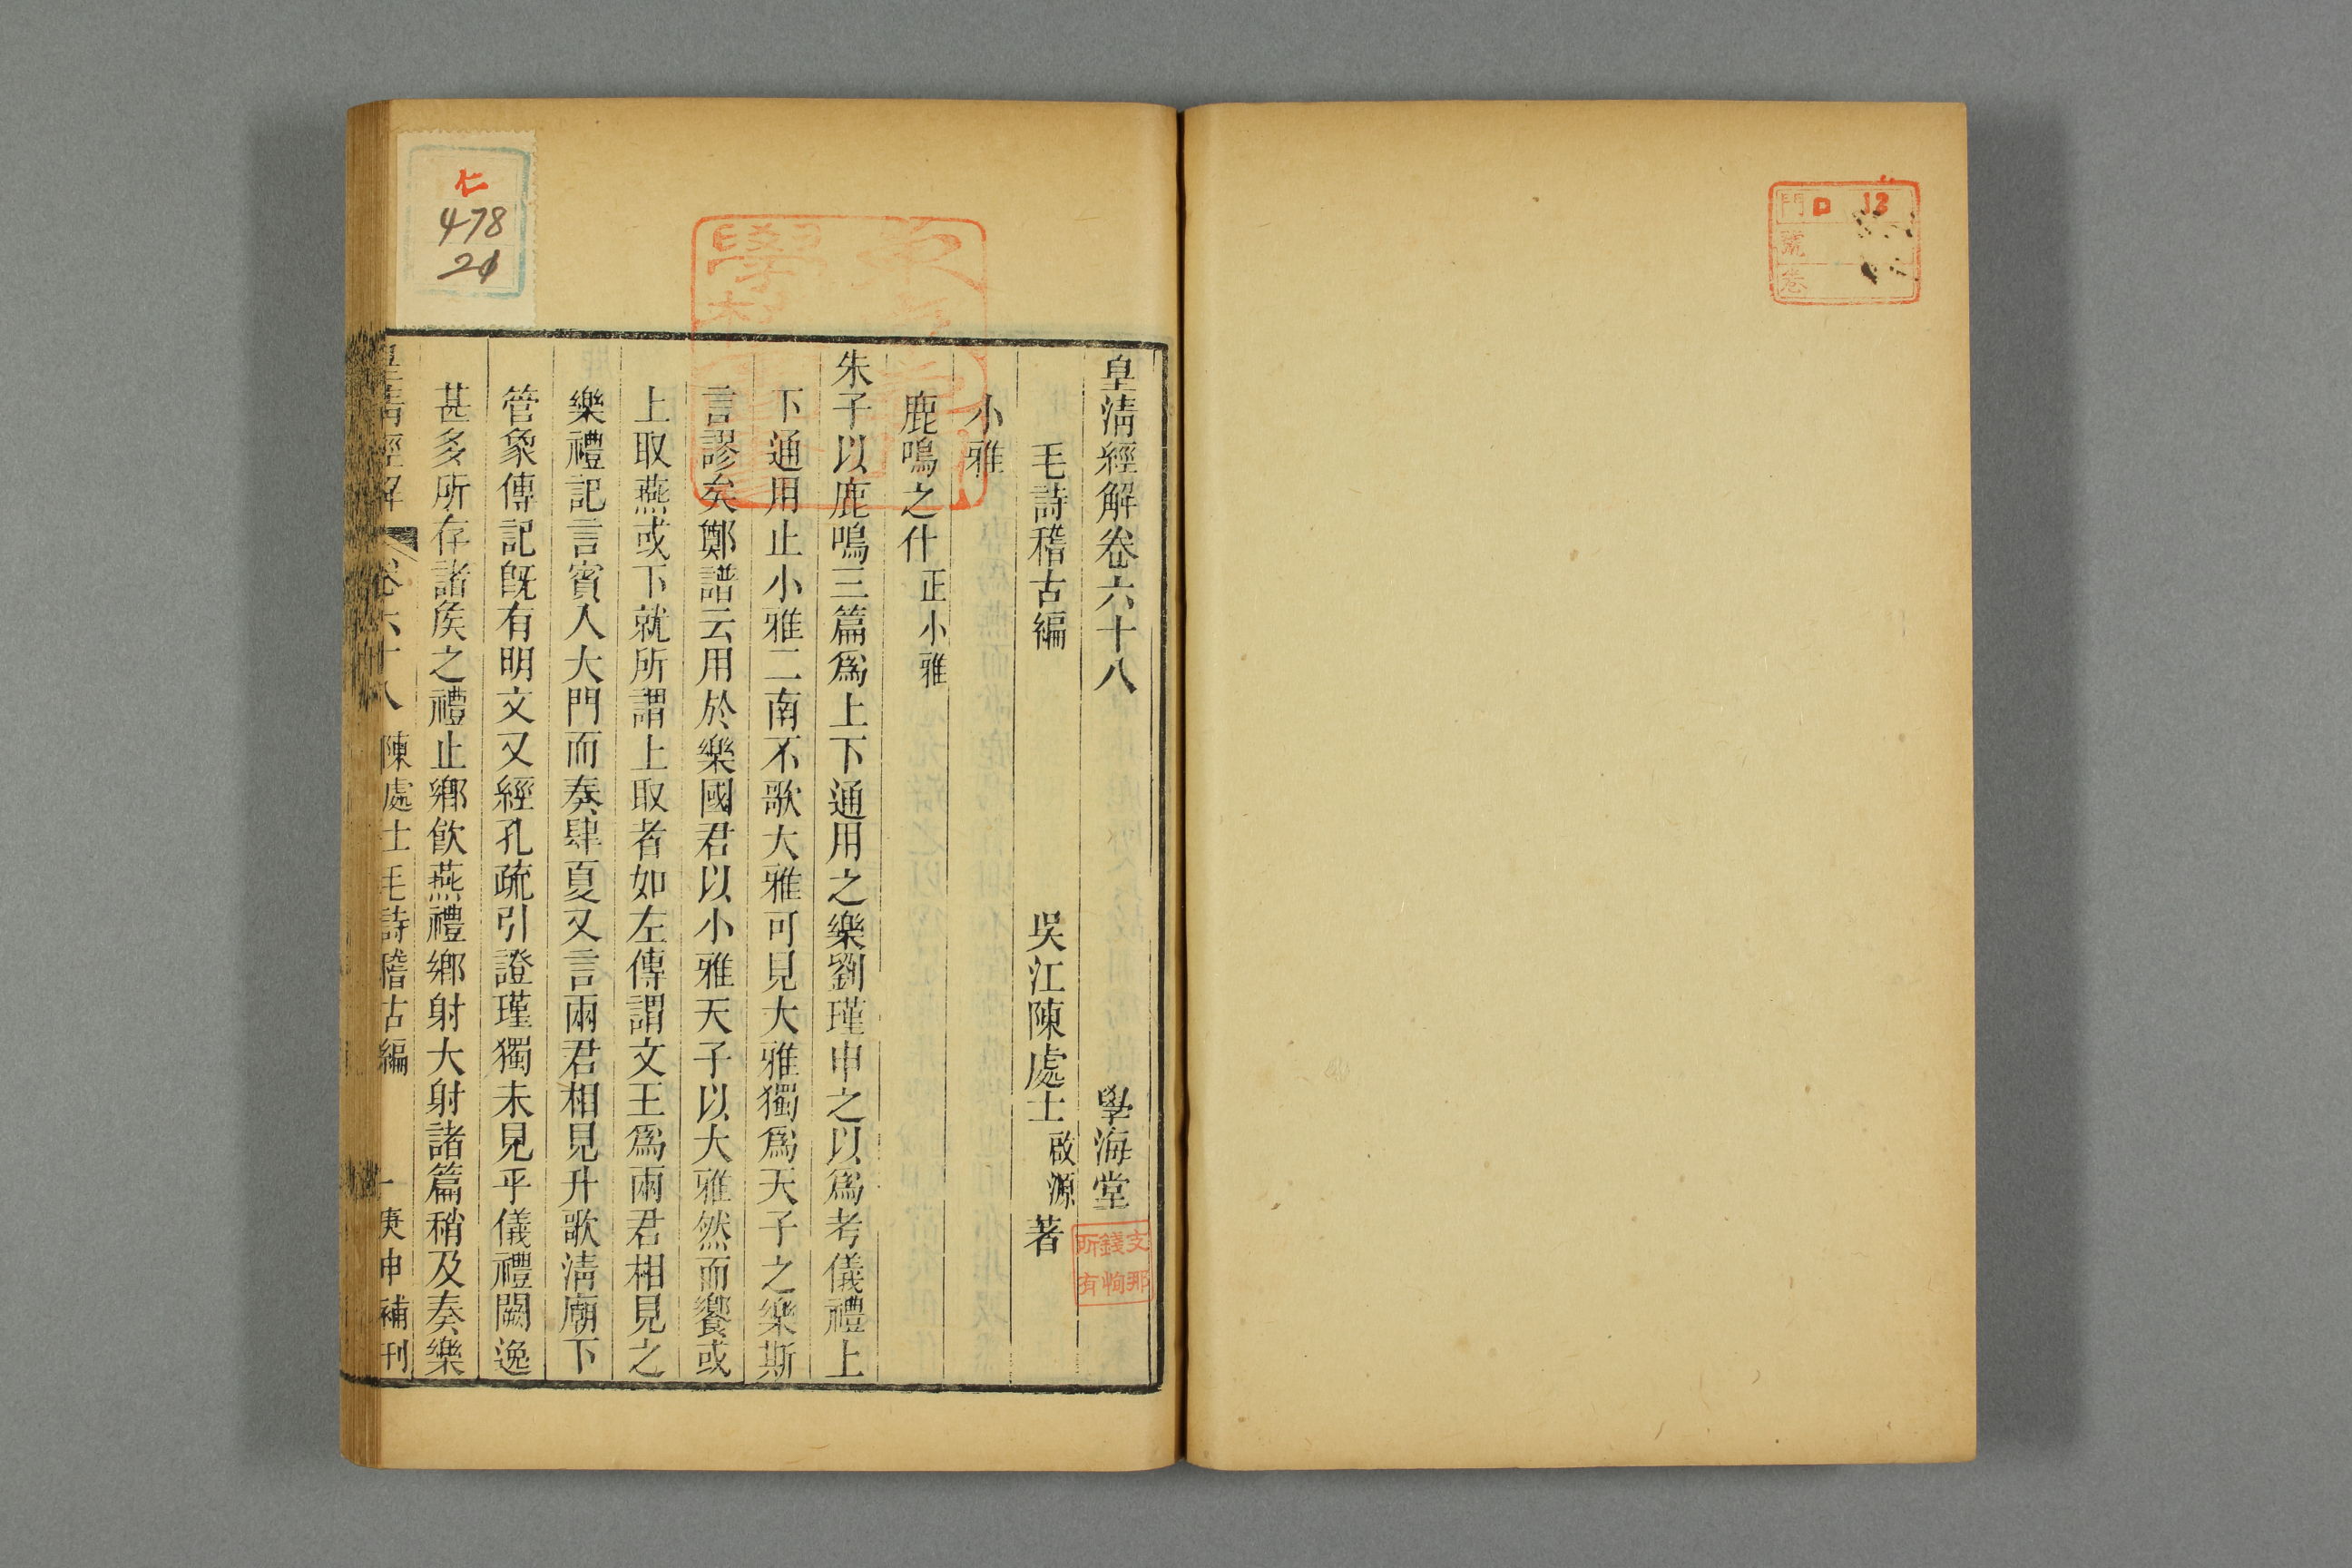 門 ロ 12
號
卷
皇淸經解卷六十八 學海堂
毛詩稽古編 吳江陳處士啟源著
小雅
鹿鳴之什正小雅
朱子以鹿鳴三篇爲上下通用之樂劉瑾申之以爲考儀禮上
下通用止小雅二南不歌大雅可見大雅獨爲天子之樂斯
言謬矣鄭譜云用於樂國君以小雅天子以大雅然而饗或
上取燕或下就所謂上取者如左傳謂文王爲兩君相見之
樂禮記言賓入大門而奏肆夏又言兩君相見升歌淸廟下
管象傳記旣有明文又經孔疏引證瑾獨未見乎儀禮闕逸
甚多所存諸矦之禮止鄕飮燕禮鄕射大射諸篇稍及奏樂
皇淸經解 卷六十八 陳處士毛詩稽古編 一 庚申補刊
支那
錢恂
所有
七
478
21